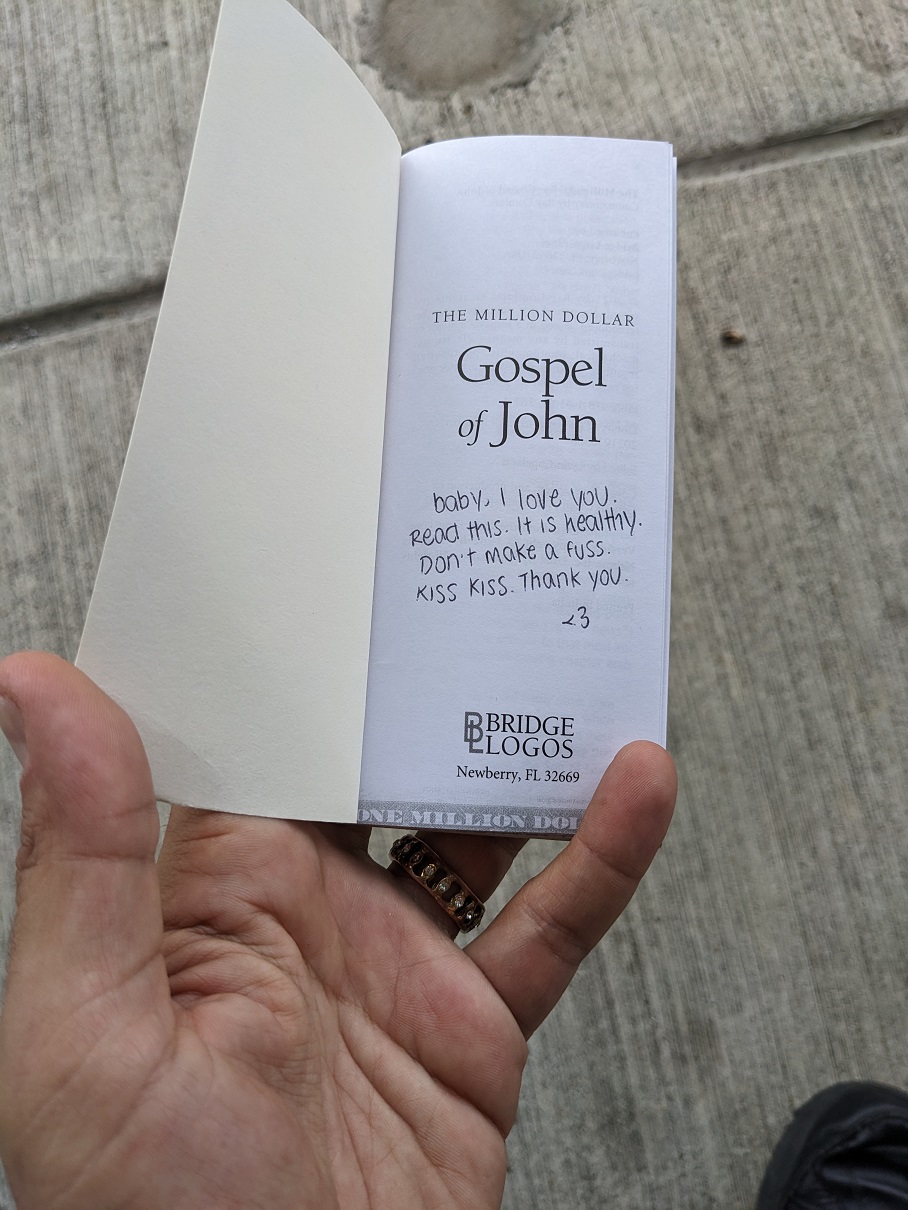 THE MILLION DOLLAR
Gospel
of John
baby, I love you.
Read this. It is healthy.
Don't make a fuss.
Kiss Kiss. Thank you.
<3
BL BRIDGE
LOGOS
Newberry, FL 32669
ONE MILLION DOL